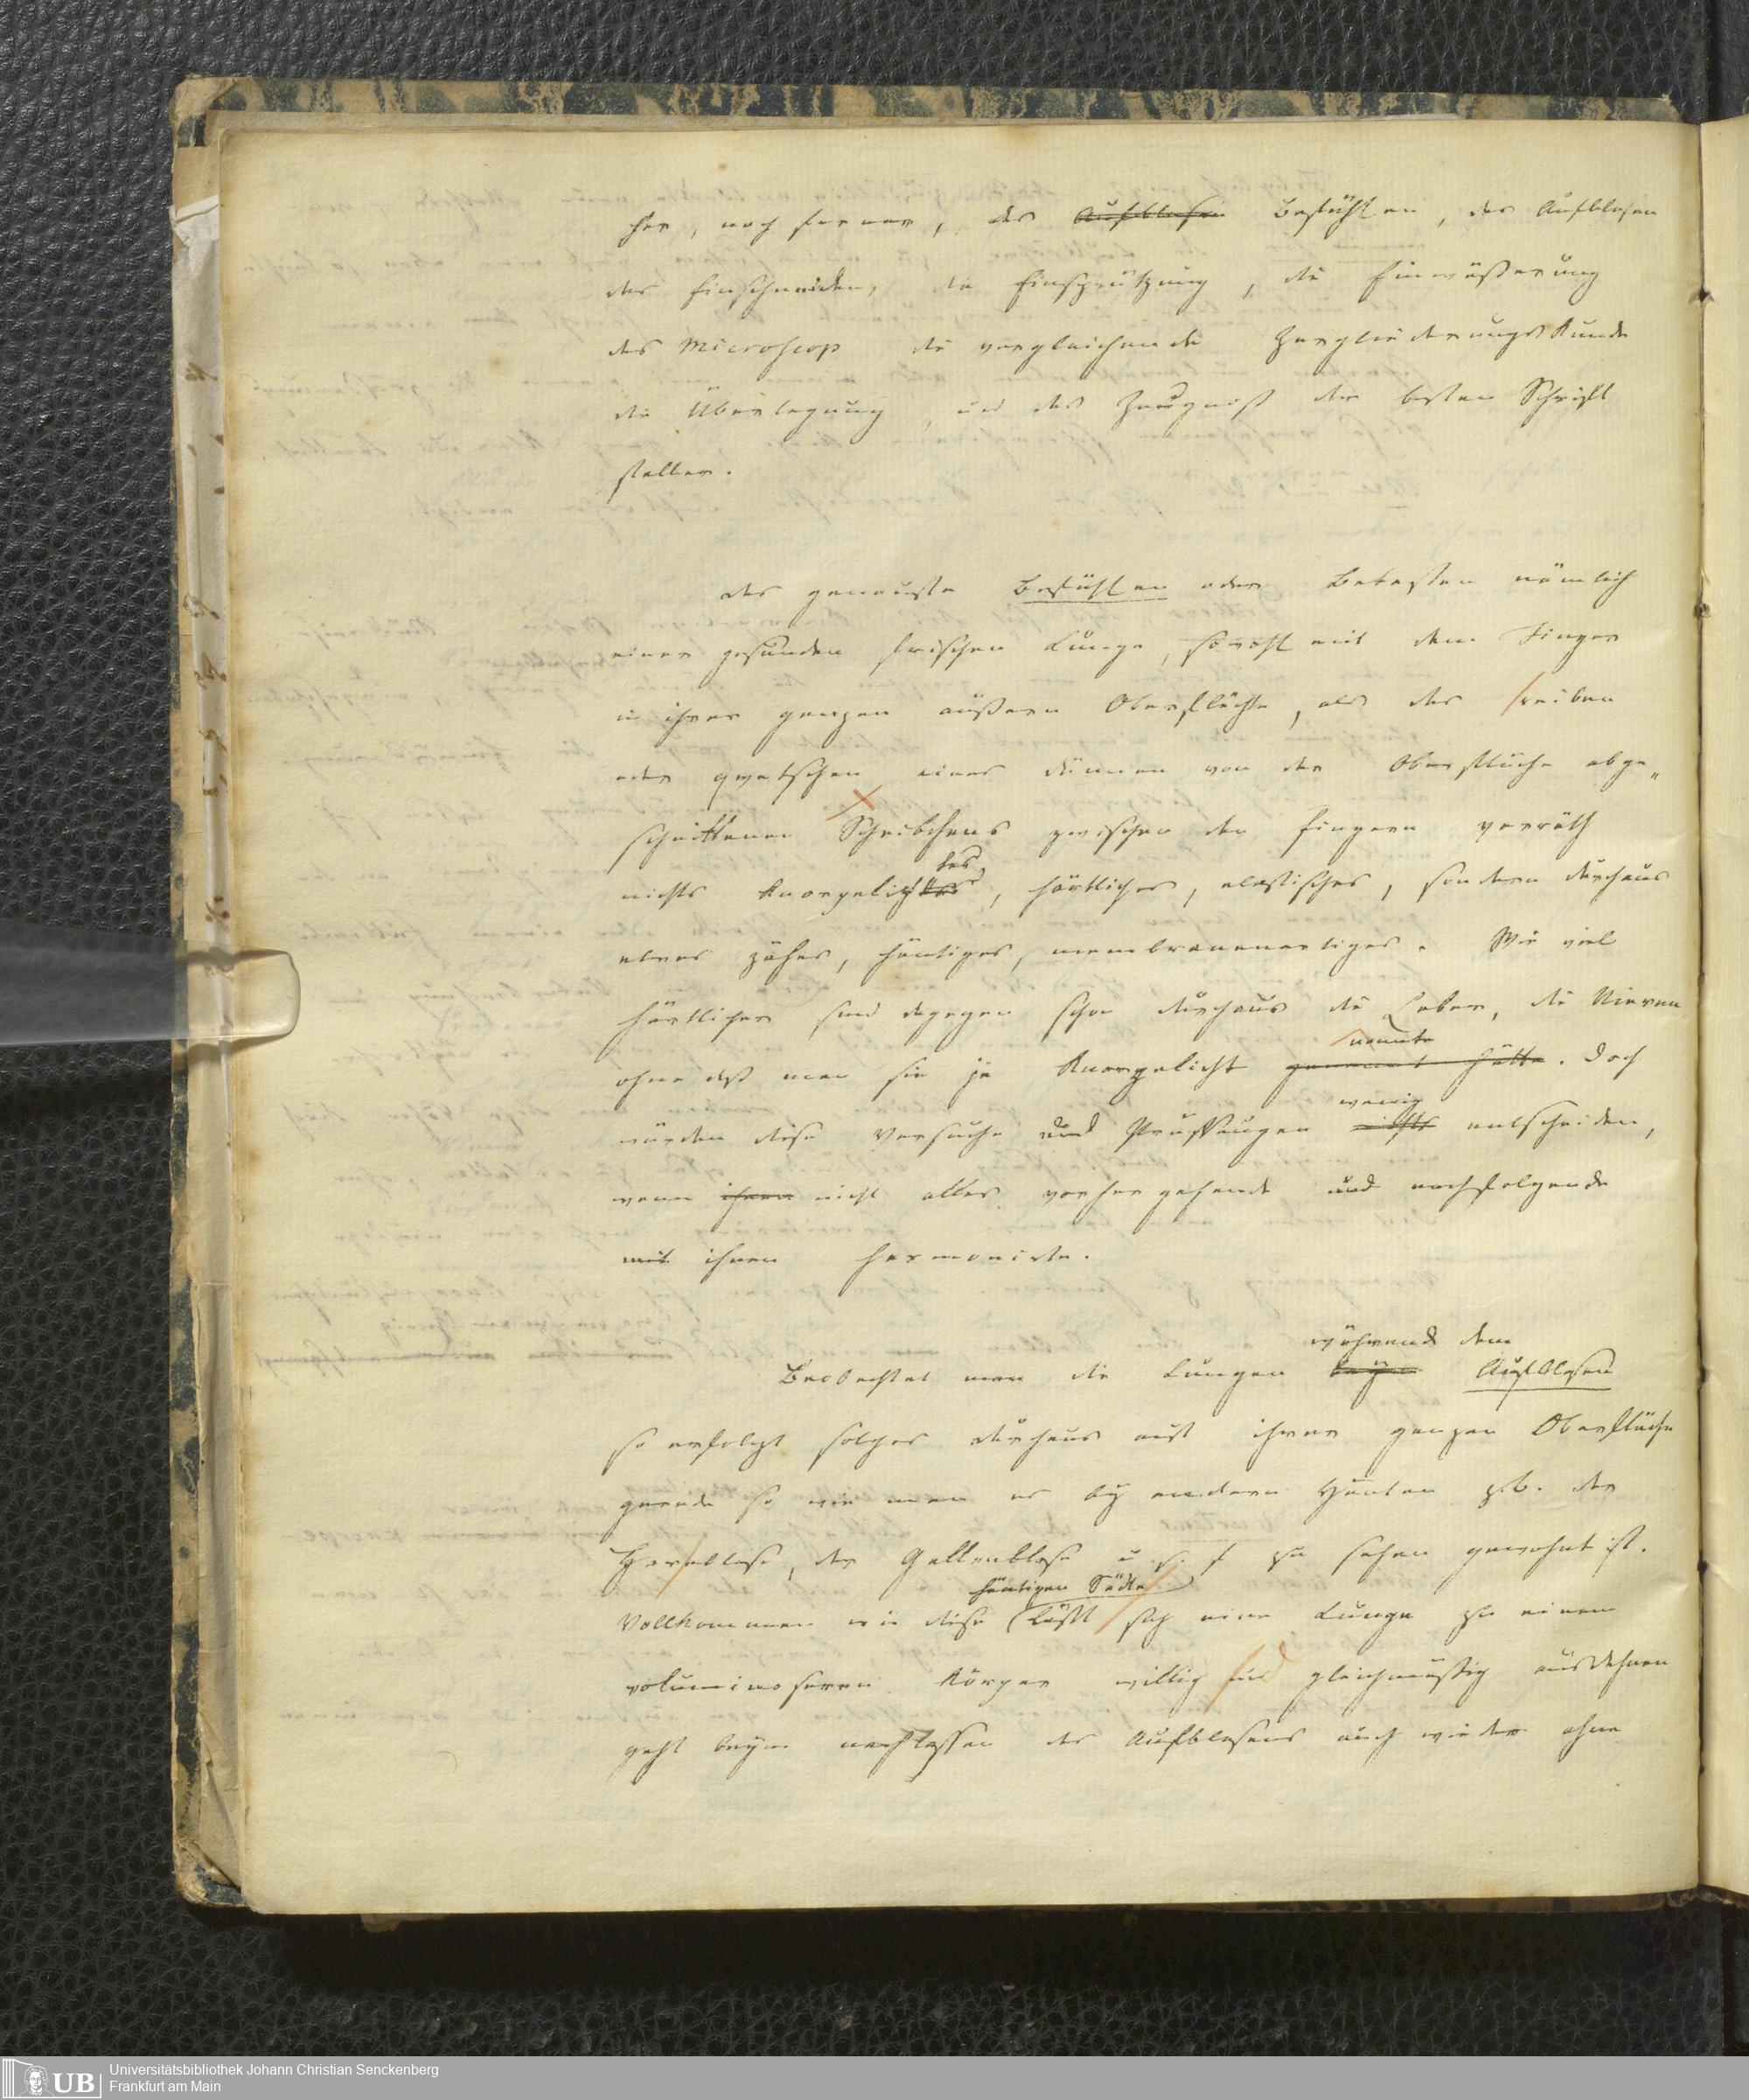 her, noch ferner, das Aufblasen Befühlen, das Aufblasen
das Einschneiden, die Einsprützung, die Einwäßerung
das Microscop die vergleichende Zergliederungs Kunde
die Überlegung, und das Zeugniß der besten Schrift
steller.
Das genauste Befühlen oder Betasten nämlich
einer gesunden frischen Lunge, sowohl mit dem Finger
in ihrer ganzen äußern Oberfläche, als das reiben
oder quetschen eines dünnen von der Oberfläche abge„
schnittenen Scheibchens zwischen den Fingern verräth
tes,
nichts knorpelich, härtliches, elastisches, sondern durchaus
etwas zähes, häutiges, membranenartiges. Wie viel
härtlicher sind dagegen schon durchaus die Leber, die Nieren
nennte
ohne daß man sie je Knorpelicht genannt hätte. Doch
wenig
würden diese Versuche und Prüfungen nichts entscheiden,
wenn ihnen nicht alles vorhergehende und nachfolgende
mit ihnen harmonirte.
während dem
Beobachtet man die Lungen beym Aufblasen
so erfolgt solches durchaus auf ihrer ganzen Oberfläche
gerade so wie man es bey andern Häuten z.b. der
Harnblase, der Gallenblase u. s. f zu sehen gewohnt ist.
häutigen Säcke
Vollkommen wie diese läßt sich eine Lunge zu einem
voluminosern Körper willig und gleichmäßig ausdehnen
geht beym nachlassen des Aufblasens auch wieder ohne
UB Universitätsbibliothek Johann Christian Senckenberg
Frankfurt am Main